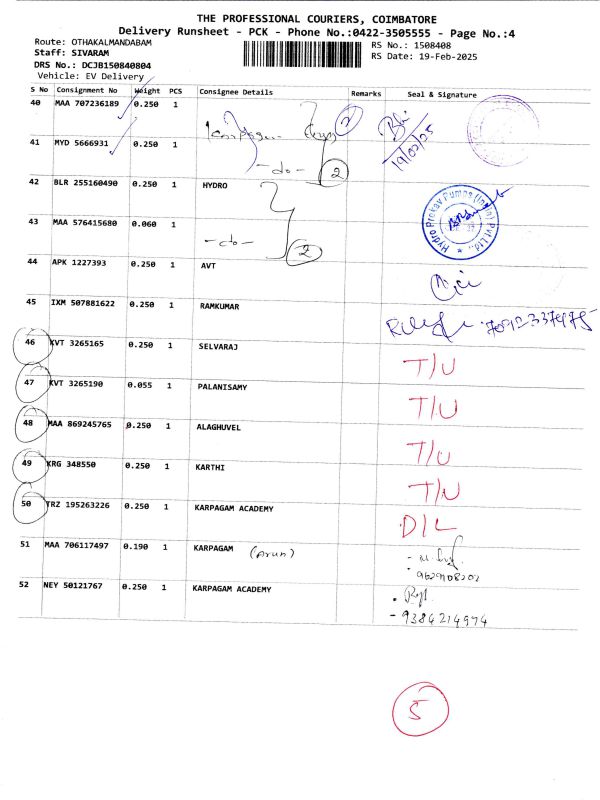 THE PROFESSIONAL COURIERS, COIMBATORE
Delivery Runsheet - PCK - Phone No.:0422-3505555 - Page No.:4
Route: OTHAKALMANDABAM
RS No.: 1508408
Staff: SIVARAM
RS Date: 19-Feb-2025
DRS No.: DCJB150840804
Vehicle: EV Delivery
S No Consignment No Weight PCS Consignee Details Remarks Seal & Signature
40 MAA 707236189 0.250 1 Karpagam 2
19/02/25
41 MYD 5666931 0.250 1 -do- 2
42 BLR 255160490 0.250 1 HYDRO
Hydro Prokav Pumps (India) Pvt Ltd.,
43 MAA 576415680 0.060 1 -do- 2
44 APK 1227393 0.250 1 AVT
45 IXM 507881622 0.250 1 RAMKUMAR
46 KVT 3265165 0.250 1 SELVARAJ T/U
47 KVT 3265190 0.055 1 PALANISAMY T/U
48 MAA 869245765 0.250 1 ALAGHUVEL T/U
49 KRG 348550 0.250 1 KARTHI T/U
50 TRZ 195263226 0.250 1 KARPAGAM ACADEMY D/L
51 MAA 706117497 0.190 1 KARPAGAM (Arun)
52 NEY 50121767 0.250 1 KARPAGAM ACADEMY
- 9384214974
5